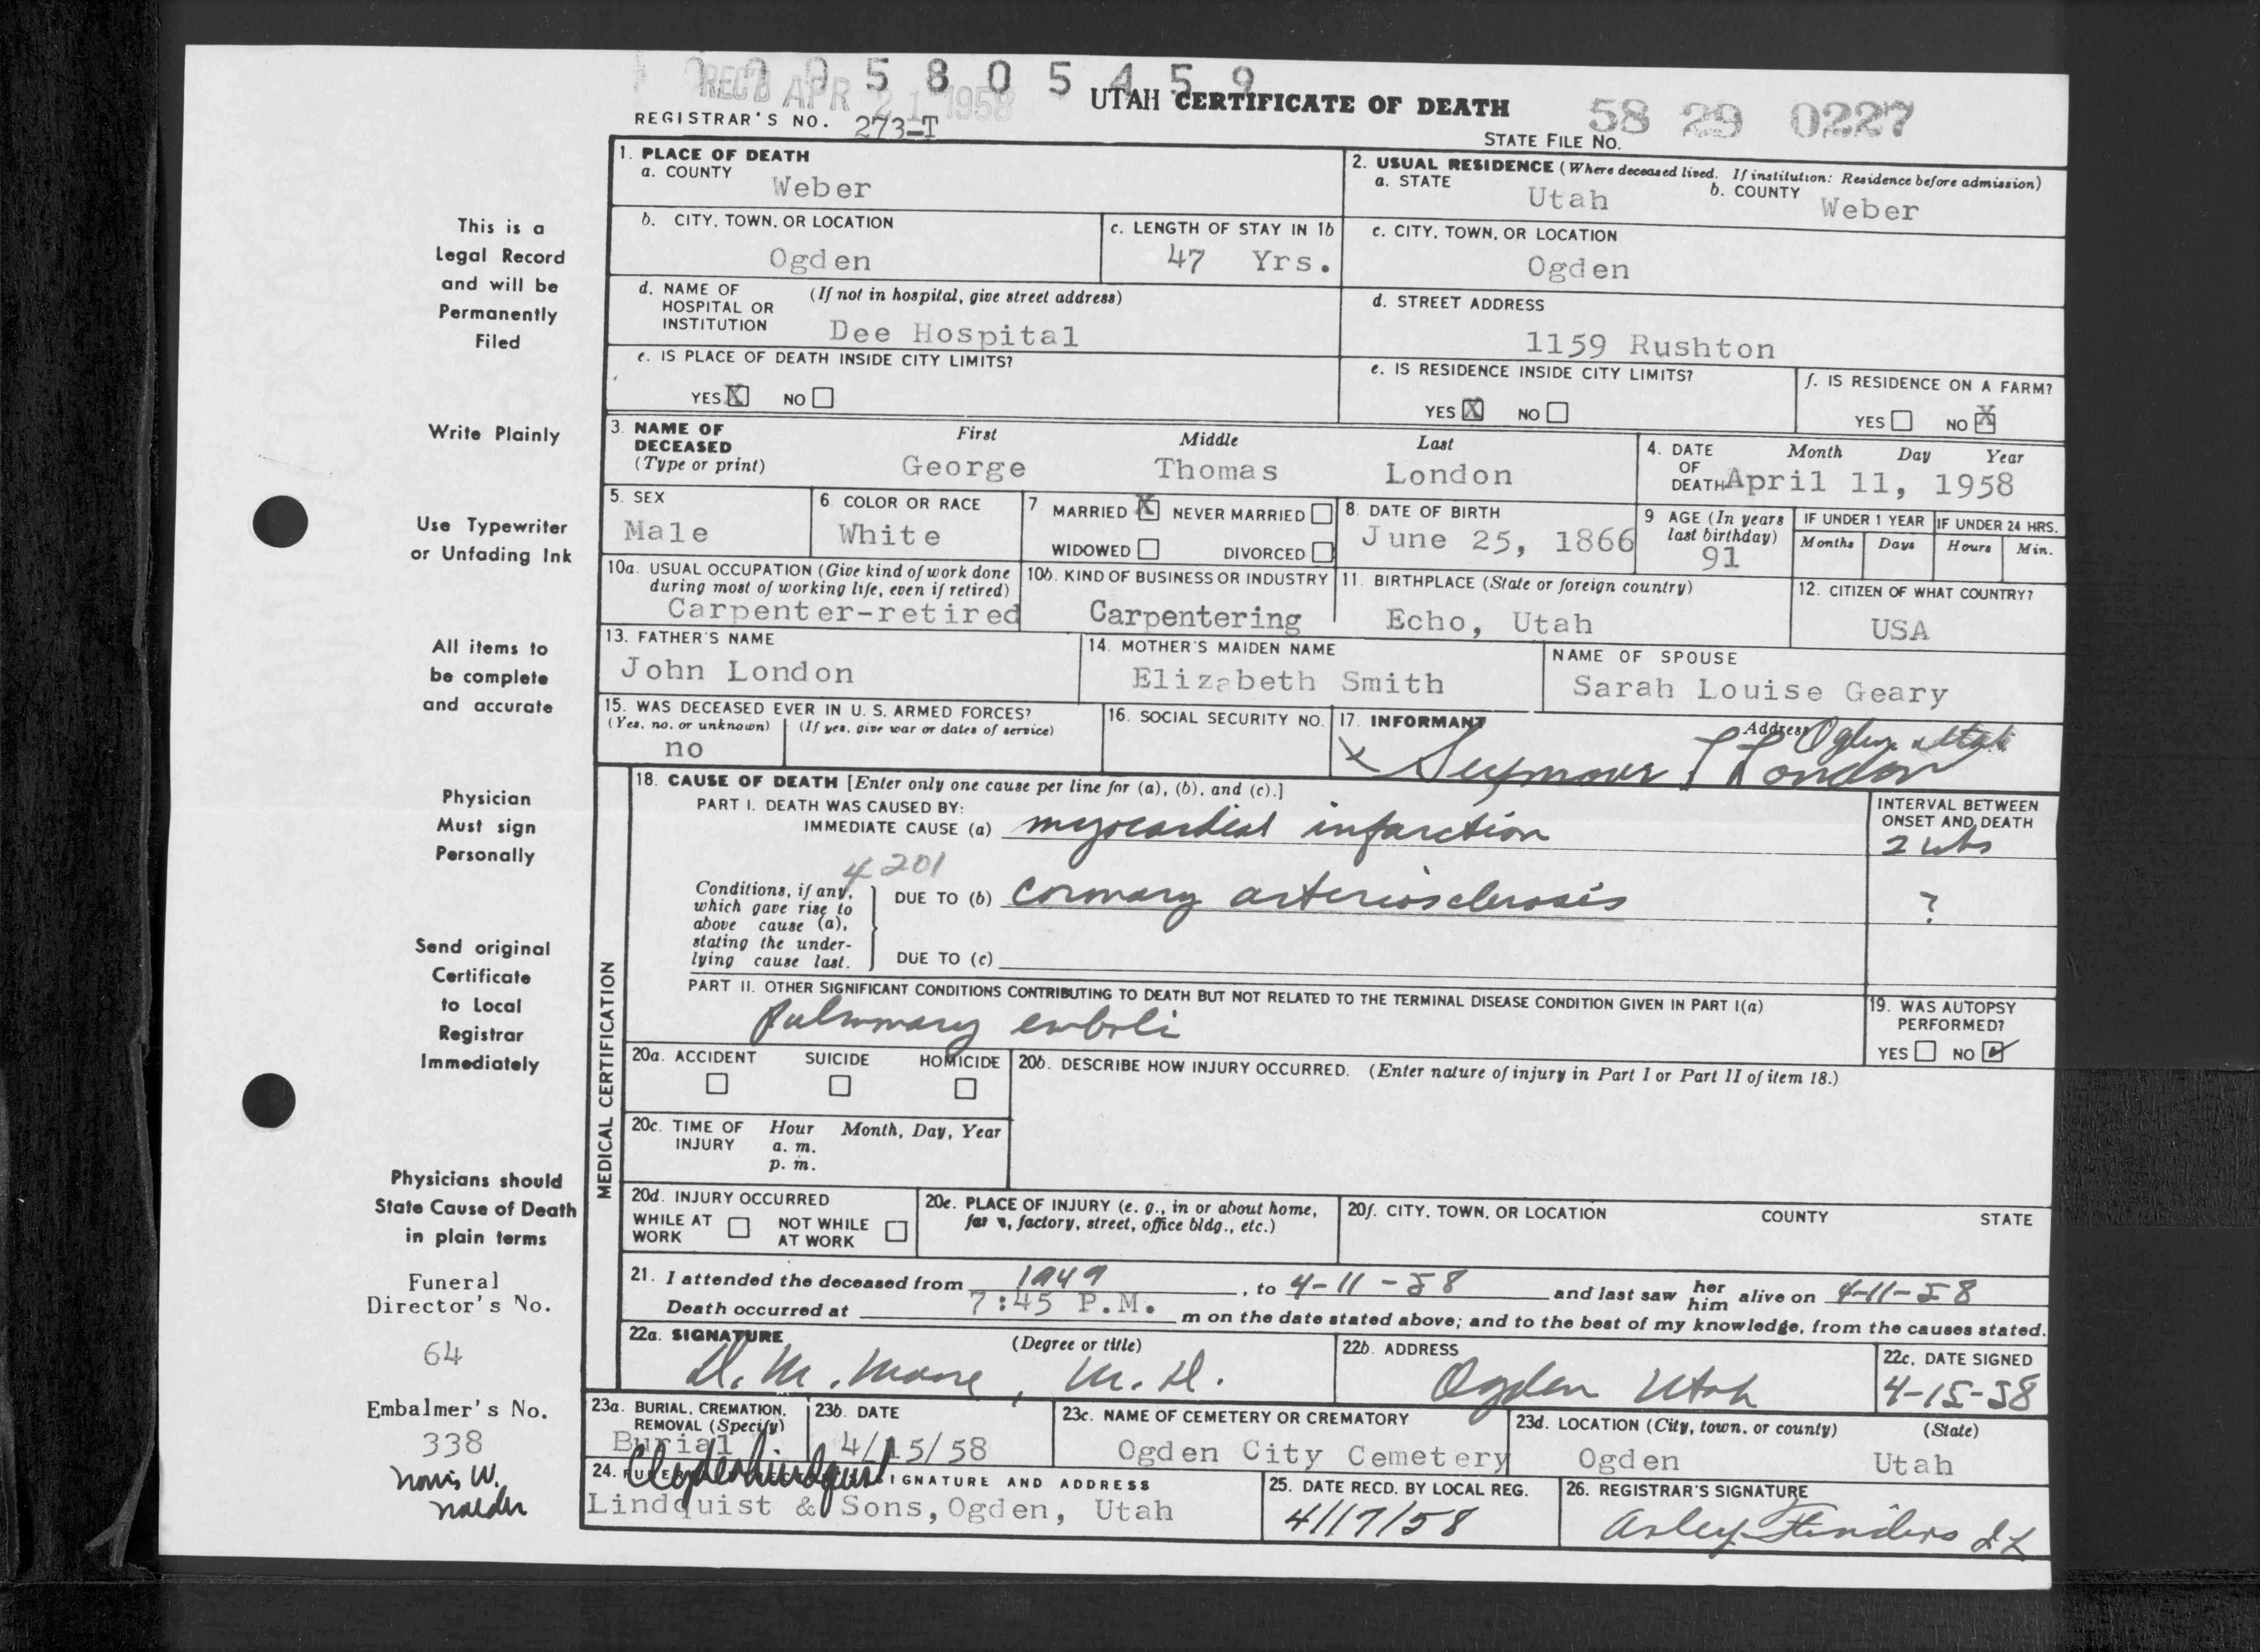 5 8 0 5 4 5 9
REC'D APR 21 1958
UTAH CERTIFICATE OF DEATH
58 29 0227
REGISTRAR'S NO. 273-T
STATE FILE NO.
This is a
Legal Record
and will be
Permanently
Filed
Write Plainly
Use Typewriter
or Unfading Ink
All items to
be complete
and accurate
Physician
Must sign
Personally
Send original
Certificate
to Local
Registrar
Immediately
Physicians should
State Cause of Death
in plain terms
Funeral
Director's No.
64
Embalmer's No.
338
1. PLACE OF DEATH
a. COUNTY
Weber
2. USUAL RESIDENCE (Where deceased lived. If institution: Residence before admission)
a. STATE Utah b. COUNTY Weber
b. CITY, TOWN, OR LOCATION
Ogden
c. LENGTH OF STAY IN 1b
47 Yrs.
c. CITY, TOWN, OR LOCATION
Ogden
d. NAME OF HOSPITAL OR INSTITUTION (If not in hospital, give street address)
Dee Hospital
d. STREET ADDRESS
1159 Rushton
e. IS PLACE OF DEATH INSIDE CITY LIMITS?
YES X NO
e. IS RESIDENCE INSIDE CITY LIMITS?
YES X NO
f. IS RESIDENCE ON A FARM?
YES NO X
3. NAME OF DECEASED (Type or print)
First Middle Last
George Thomas London
4. DATE OF DEATH Month Day Year
April 11, 1958
5. SEX
Male
6. COLOR OR RACE
White
7 MARRIED X NEVER MARRIED
WIDOWED DIVORCED
8. DATE OF BIRTH
June 25, 1866
9 AGE (In years last birthday)
91
IF UNDER 1 YEAR
Months Days
IF UNDER 24 HRS.
Hours Min.
10a. USUAL OCCUPATION (Give kind of work done
during most of working life, even if retired)
Carpenter-retired
10b. KIND OF BUSINESS OR INDUSTRY
Carpentering
11. BIRTHPLACE (State or foreign country)
Echo, Utah
12. CITIZEN OF WHAT COUNTRY?
USA
13. FATHER'S NAME
John London
14. MOTHER'S MAIDEN NAME
Elizabeth Smith
NAME OF SPOUSE
Sarah Louise Geary
15. WAS DECEASED EVER IN U. S. ARMED FORCES?
(Yes, no, or unknown) (If yes, give war or dates of service)
no
16. SOCIAL SECURITY NO.
17. INFORMANT Address Ogden Utah
x Seymour T London
MEDICAL CERTIFICATION
18. CAUSE OF DEATH [Enter only one cause per line for (a), (b), and (c).]
PART I. DEATH WAS CAUSED BY:
IMMEDIATE CAUSE (a) myocardial infarction
INTERVAL BETWEEN
ONSET AND DEATH
2 wks
4201
Conditions, if any,
which gave rise to
above cause (a),
stating the under-
lying cause last.
DUE TO (b) coronary arteriosclerosis
?
DUE TO (c)
PART II. OTHER SIGNIFICANT CONDITIONS CONTRIBUTING TO DEATH BUT NOT RELATED TO THE TERMINAL DISEASE CONDITION GIVEN IN PART I(a)
Pulmonary emboli
19. WAS AUTOPSY
PERFORMED?
YES NO ✓
20a. ACCIDENT SUICIDE HOMICIDE
20b. DESCRIBE HOW INJURY OCCURRED. (Enter nature of injury in Part I or Part II of item 18.)
20c. TIME OF INJURY Hour Month, Day, Year
a. m.
p. m.
20d. INJURY OCCURRED
WHILE AT WORK NOT WHILE AT WORK
20e. PLACE OF INJURY (e. g., in or about home,
factory, street, office bldg., etc.)
20f. CITY, TOWN, OR LOCATION COUNTY STATE
21. I attended the deceased from 1949, to 4-11-58 and last saw her him alive on 4-11-58
Death occurred at 7:45 P.M. m on the date stated above; and to the best of my knowledge, from the causes stated.
22a. SIGNATURE (Degree or title)
D. M. Moore, M. D.
22b. ADDRESS
Ogden Utah
22c. DATE SIGNED
4-15-58
23a. BURIAL, CREMATION,
REMOVAL (Specify)
Burial
23b. DATE
4/15/58
23c. NAME OF CEMETERY OR CREMATORY
Ogden City Cemetery
23d. LOCATION (City, town, or county) (State)
Ogden Utah
24. SIGNATURE AND ADDRESS
Lindquist & Sons, Ogden, Utah
25. DATE RECD. BY LOCAL REG.
4/17/58
26. REGISTRAR'S SIGNATURE